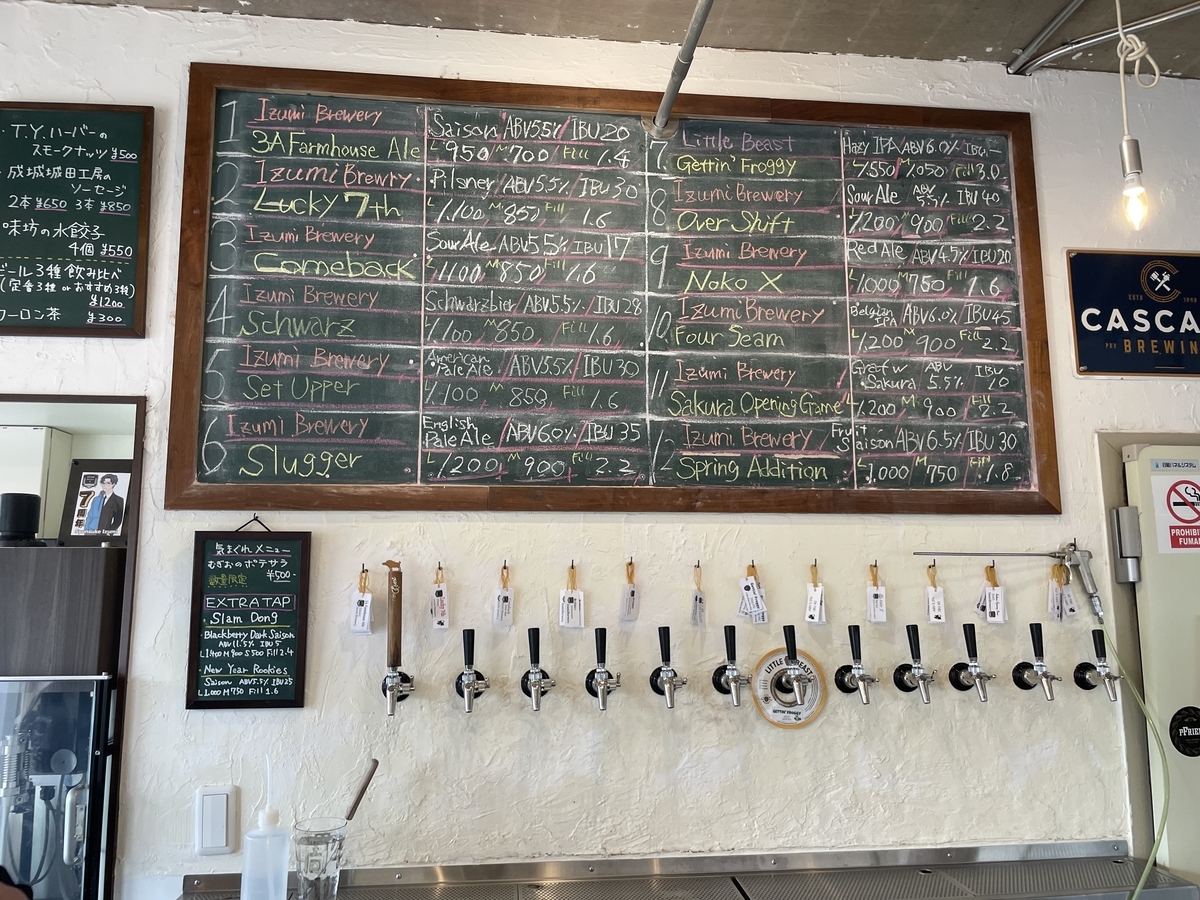 ・T.Y.ハーバーの
スモークナッツ ¥500
・成城城田工房の
ソーセージ
2本 ¥650 3本 ¥850
味坊の水餃子
4個 ¥550
ビール3種飲み比べ
(定番3種 or おすすめ3種)
¥1200
ウーロン茶 ¥300
1 Izumi Brewery
3A Farmhouse Ale
Saison/ABV5.5%/IBU20
L 950 M 700 Fill 1.4
2 Izumi Brewry
Lucky 7th
Pilsner/ABV5.5%/IBU30
L 1,100 M 850 Fill 1.6
3 Izumi Brewery
Comeback
Sour Ale/ABV5.5%/IBU17
L 1,100 M 850 Fill 1.6
4 Izumi Brewery
Schwarz
Schwarzbier/ABV5.5%/IBU28
L 1,100 M 850 Fill 1.6
5 Izumi Brewery
Set Upper
American Pale Ale/ABV5.5%/IBU30
L 1,100 M 850 Fill 1.6
6 Izumi Brewery
Slugger
English Pale Ale/ABV6.0%/IBU35
L 1,200 M 900 Fill 2.2
7 Little Beast
Gettin' Froggy
Hazy IPA/ABV6.0%/IBU-
L 1,550 M 1,050 Fill 3.0
8 Izumi Brewery
Over Shift
Sour Ale/ABV 5.5%/IBU40
L 1,200 M 900 Fill 2.2
9 Izumi Brewery
Noko X
Red Ale/ABV4.5%/IBU20
L 1,000 M 750 Fill 1.6
10 Izumi Brewery
Four Seam
Belgian IPA/ABV6.0%/IBU45
L 1,200 M 900 Fill 2.2
11 Izumi Brewery
Sakura Opening Game
Graf w Sakura ABV 5.5% IBU 10
L 1,200 M 900 Fill 2.2
12 Izumi Brewery
Spring Addition
Fruit Saison/ABV6.5%/IBU30
L 1,000 M 750 Fill 1.8
CASCA
BREWIN
7周年
気まぐれメニュー
むぎおのポテサラ
¥500-
数量限定
EXTRA TAP
・Slam Dong
・Blackberry Dark Saison
ABV11.5% IBU5
L1400 M900 S500 Fill2.4
・New Year Rookies
Saison ABV5.5% IBU25
L1,000 M750 Fill 1.6
LITTLE BEAST
GETTIN' FROGGY
PROHIBI
FUMA
PFRIE